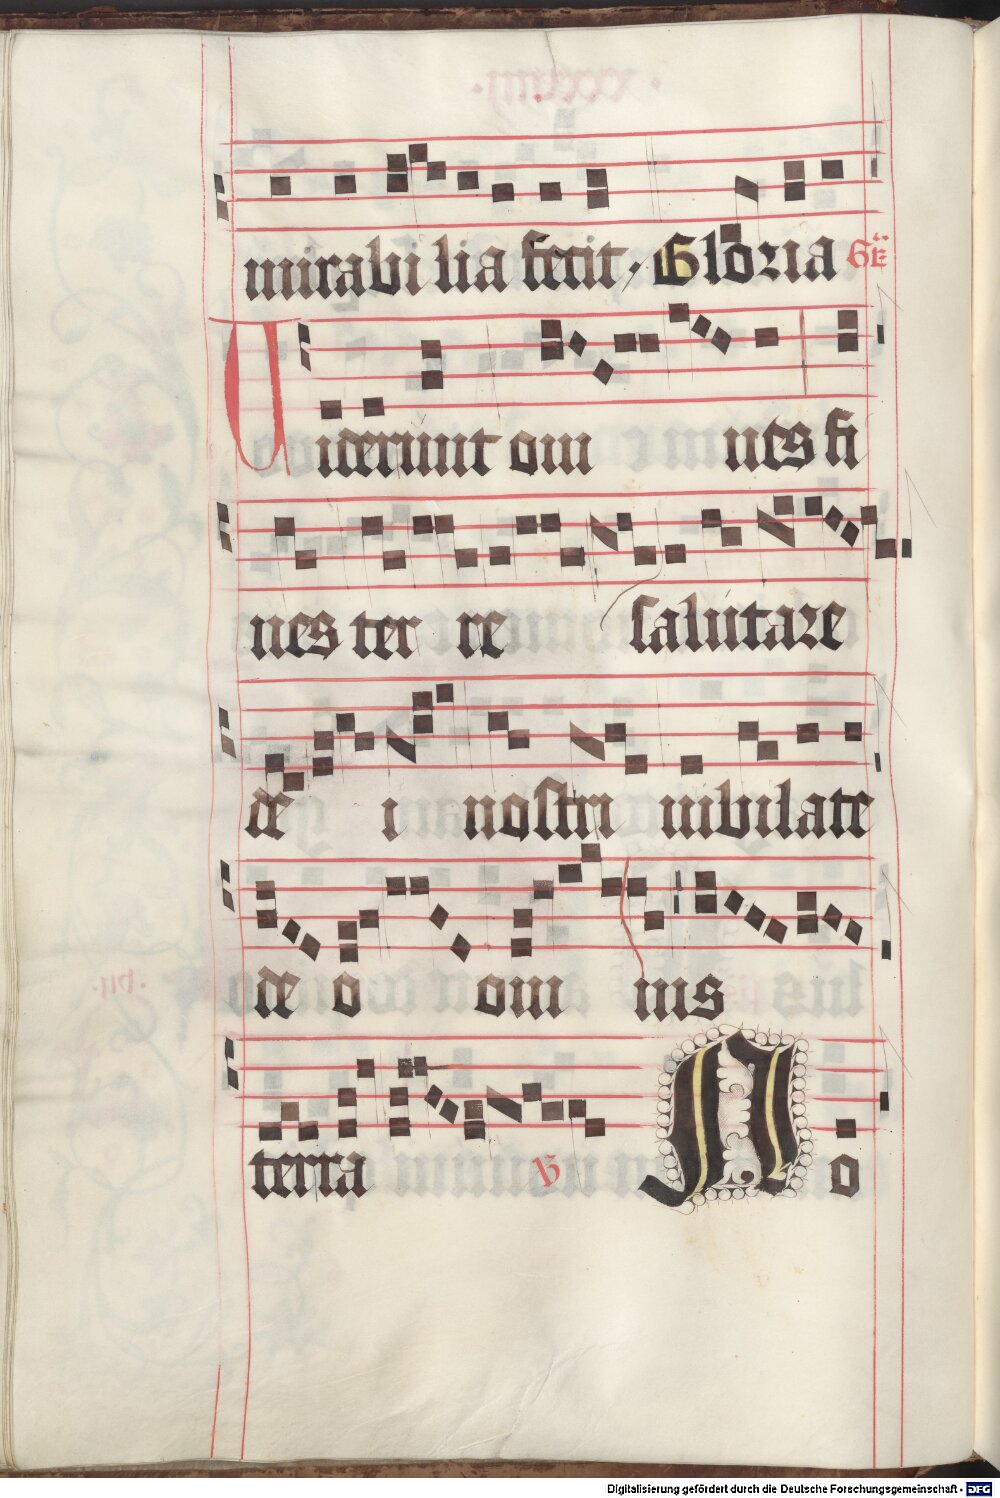 mirabi lia fecit Gloria Gr
Uiderunt om nes fi
nes ter re salutare
de i nostri iubilate
de o om nis
terra V No
Digitalisierung gefördert durch die Deutsche Forschungsgemeinschaft - DFG